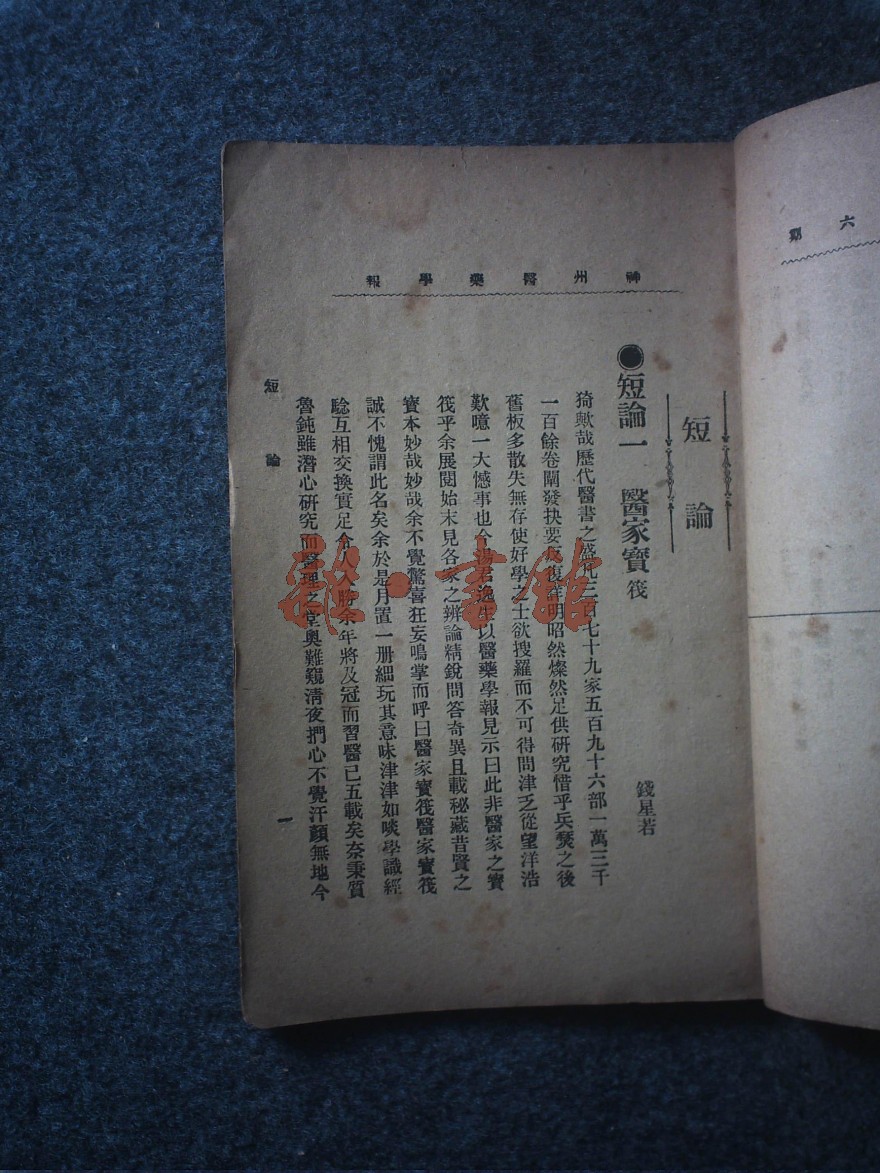 六期
神州醫藥學報
短論
●短論一　醫家寶筏
錢星若
猗歟哉歷代醫書之盛凡三百七十九家五百九十六部一萬三千
一百餘卷闡發抉要反復詳明昭然燦然足供研究惜乎兵燹之後
舊板多散失無存使好學之士欲搜羅而不可得問津乏從望洋浩
歎噫一大憾事也今湯君逸生以醫藥學報見示曰此非醫家之寶
筏乎余展閱始末見各家之辨論精銳問答奇異且載秘藏昔賢之
寶本妙哉妙哉余不覺驚喜狂妄鳴掌而呼曰醫家寶筏醫家寶筏
誠不愧謂此名矣余於是月置一册細玩其意味津津如啖學識經
騐互相交換實足令人人勝余年將及冠而習醫已五載矣奈秉質
魯鈍雖潛心研究而醫理之堂奧難窺淸夜捫心不覺汗顏無地今
短論
一
雜·書館